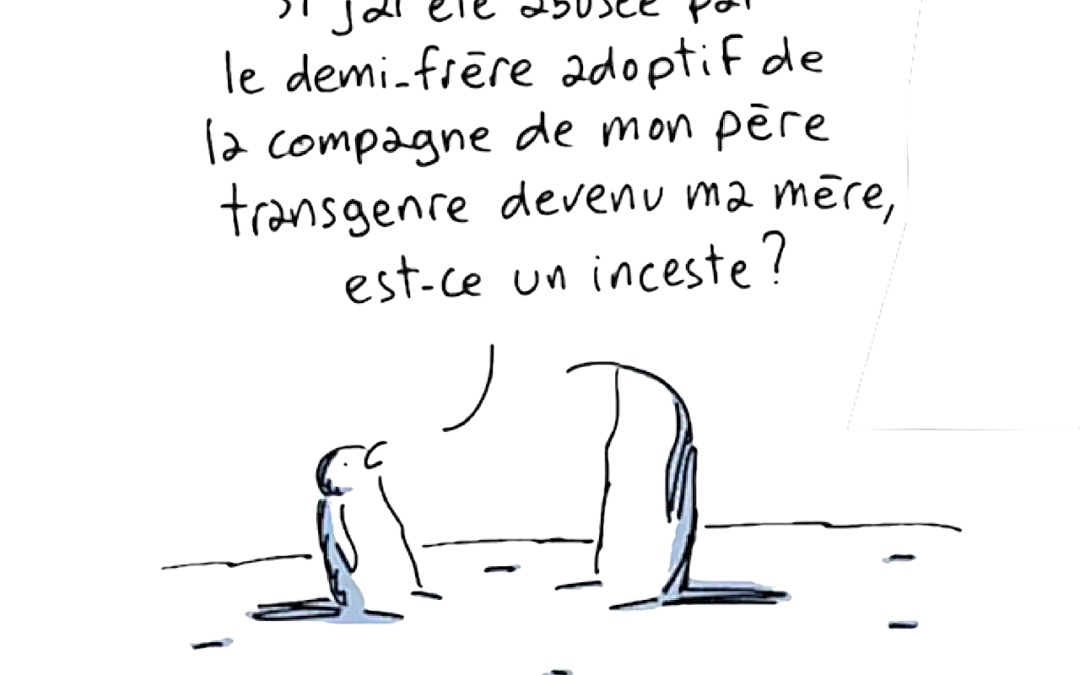 si j'ai été abusée par
le demi-frēre adoptif de
la compagne de mon pēre
transgenre devenu ma mēre,
est-ce un inceste ?